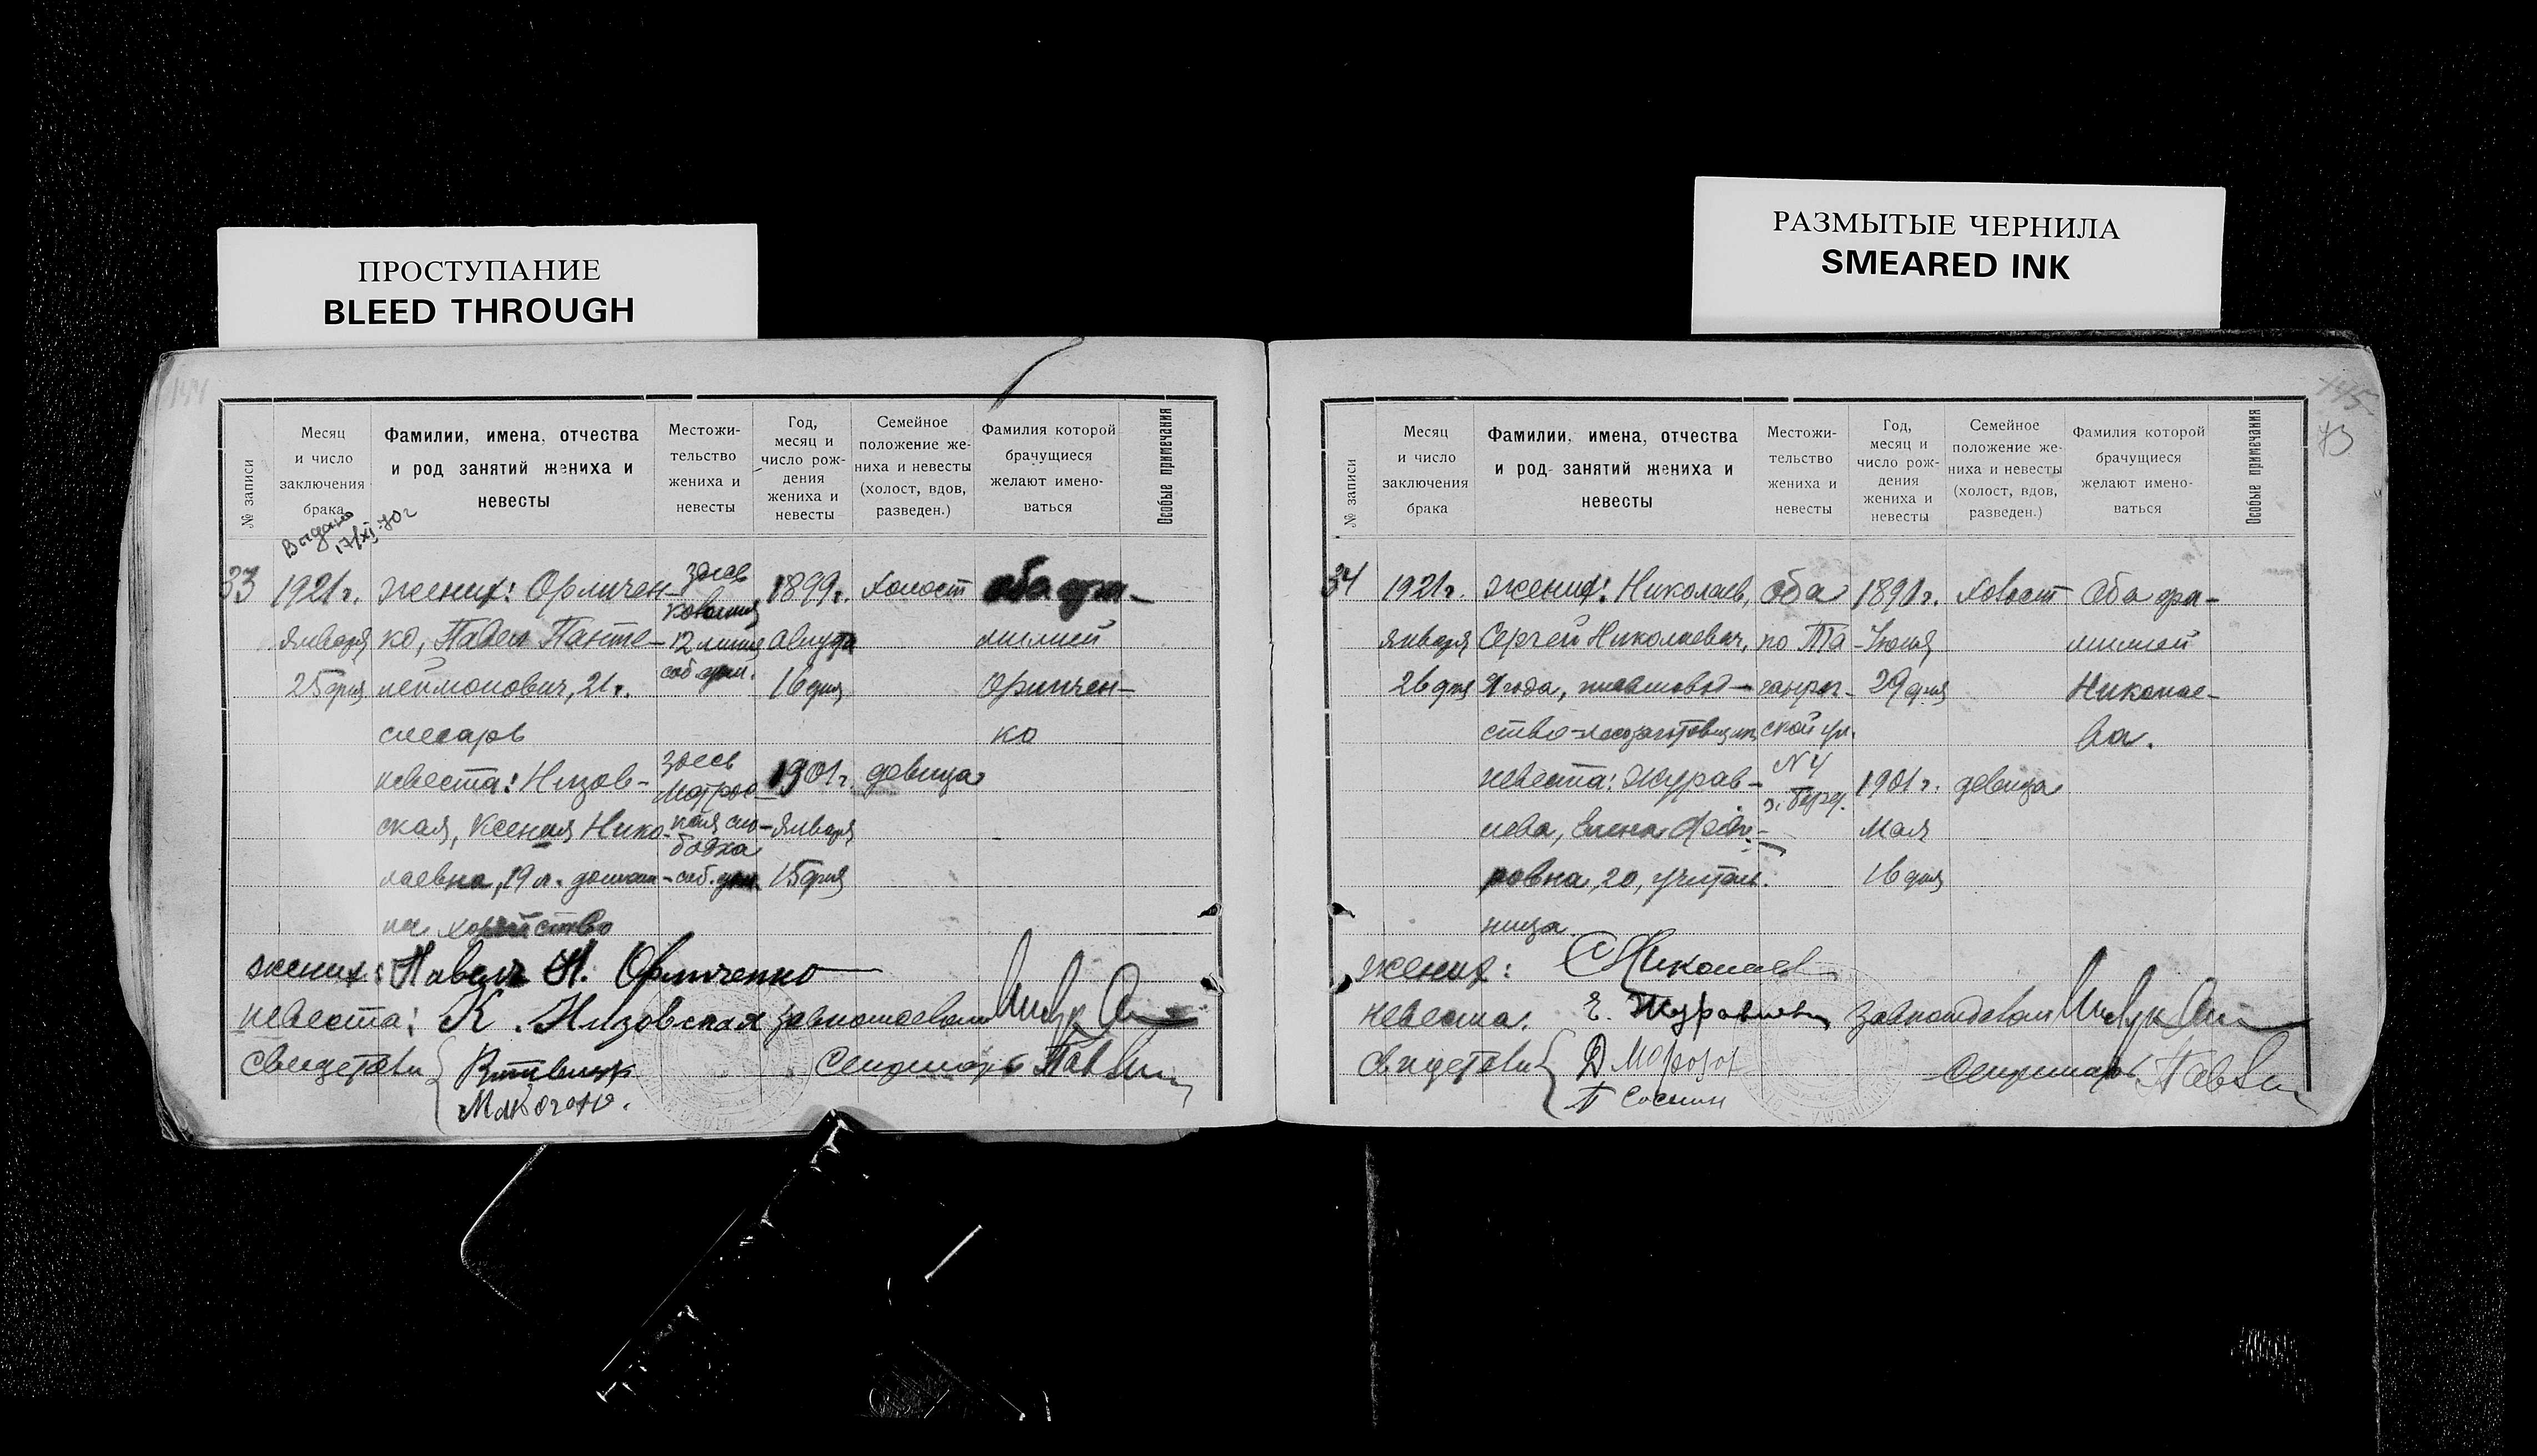 ПРОСТУПАНИЕ
BLEED THROUGH
144
№ записи
Месяц и число заключения брака
Фамилии, имена, отчества и род занятий жениха и невесты
Местожительство жениха и невесты
Год, месяц и число рождения жениха и невесты
Семейное положение жениха и невесты (холост, вдов, разведен.)
Фамилия которой брачущиеся желают именоваться
Особые примечания
Выдано
17/XI-70 г
33
1921 г.
января
25 дня
жених: Орличен-
ко, Павел Панте-
леймонович, 21 г.
слесарь
здесь
12 линия
соб. дом.
1899 г.
августа
16 дня
холост
оба фа-
милией
Орличен-
ко
невеста: Низов-
ская, Ксения Нико-
лаевна, 19 л. домаш-
нее хозяйство
здесь
Матрос-
ская сло-
бодка
соб. дом.
1901 г.
января
15 дня
девица
жених: Павел П. Орличенко
невеста: К. Низовская завподотделом
свидетели Секретарь
РАЗМЫТЫЕ ЧЕРНИЛА
SMEARED INK
145
73
№ записи
Месяц и число заключения брака
Фамилии, имена, отчества и род занятий жениха и невесты
Местожительство жениха и невесты
Год, месяц и число рождения жениха и невесты
Семейное положение жениха и невесты (холост, вдов, разведен.)
Фамилия которой брачущиеся желают именоваться
Особые примечания
34
1921 г.
января
26 дня
жених: Николаев,
Сергей Николаевич,
оба
по Та-
ганрог-
ской ул.
№ 4
1891 г.
Июня
29 дня
холост
Оба фа-
милией
Николае-
ва.
невеста: Журав-
лева, Елена Федо-
ровна, 20, учитель-
ница
1901 г.
Мая
16 дня
девица
жених: С Николаев
невеста: Е. Журавлева завподотделом
свидетели Д Морозов
П Соснин
секретарь